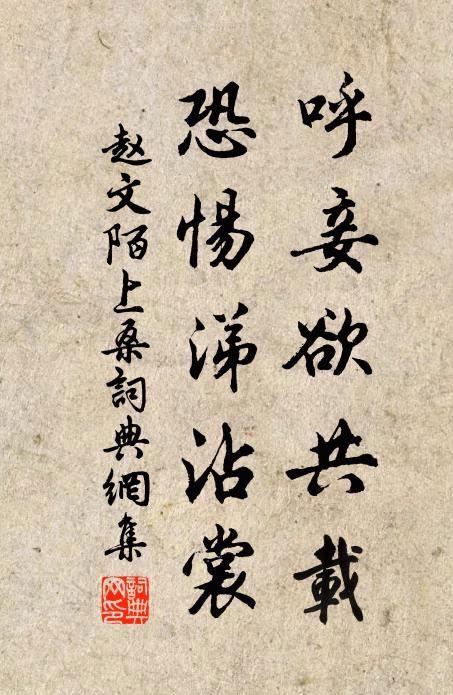 呼妾欲共載
恐惕涕沾裳
赵文陌上桑詞典網集
詞典网印